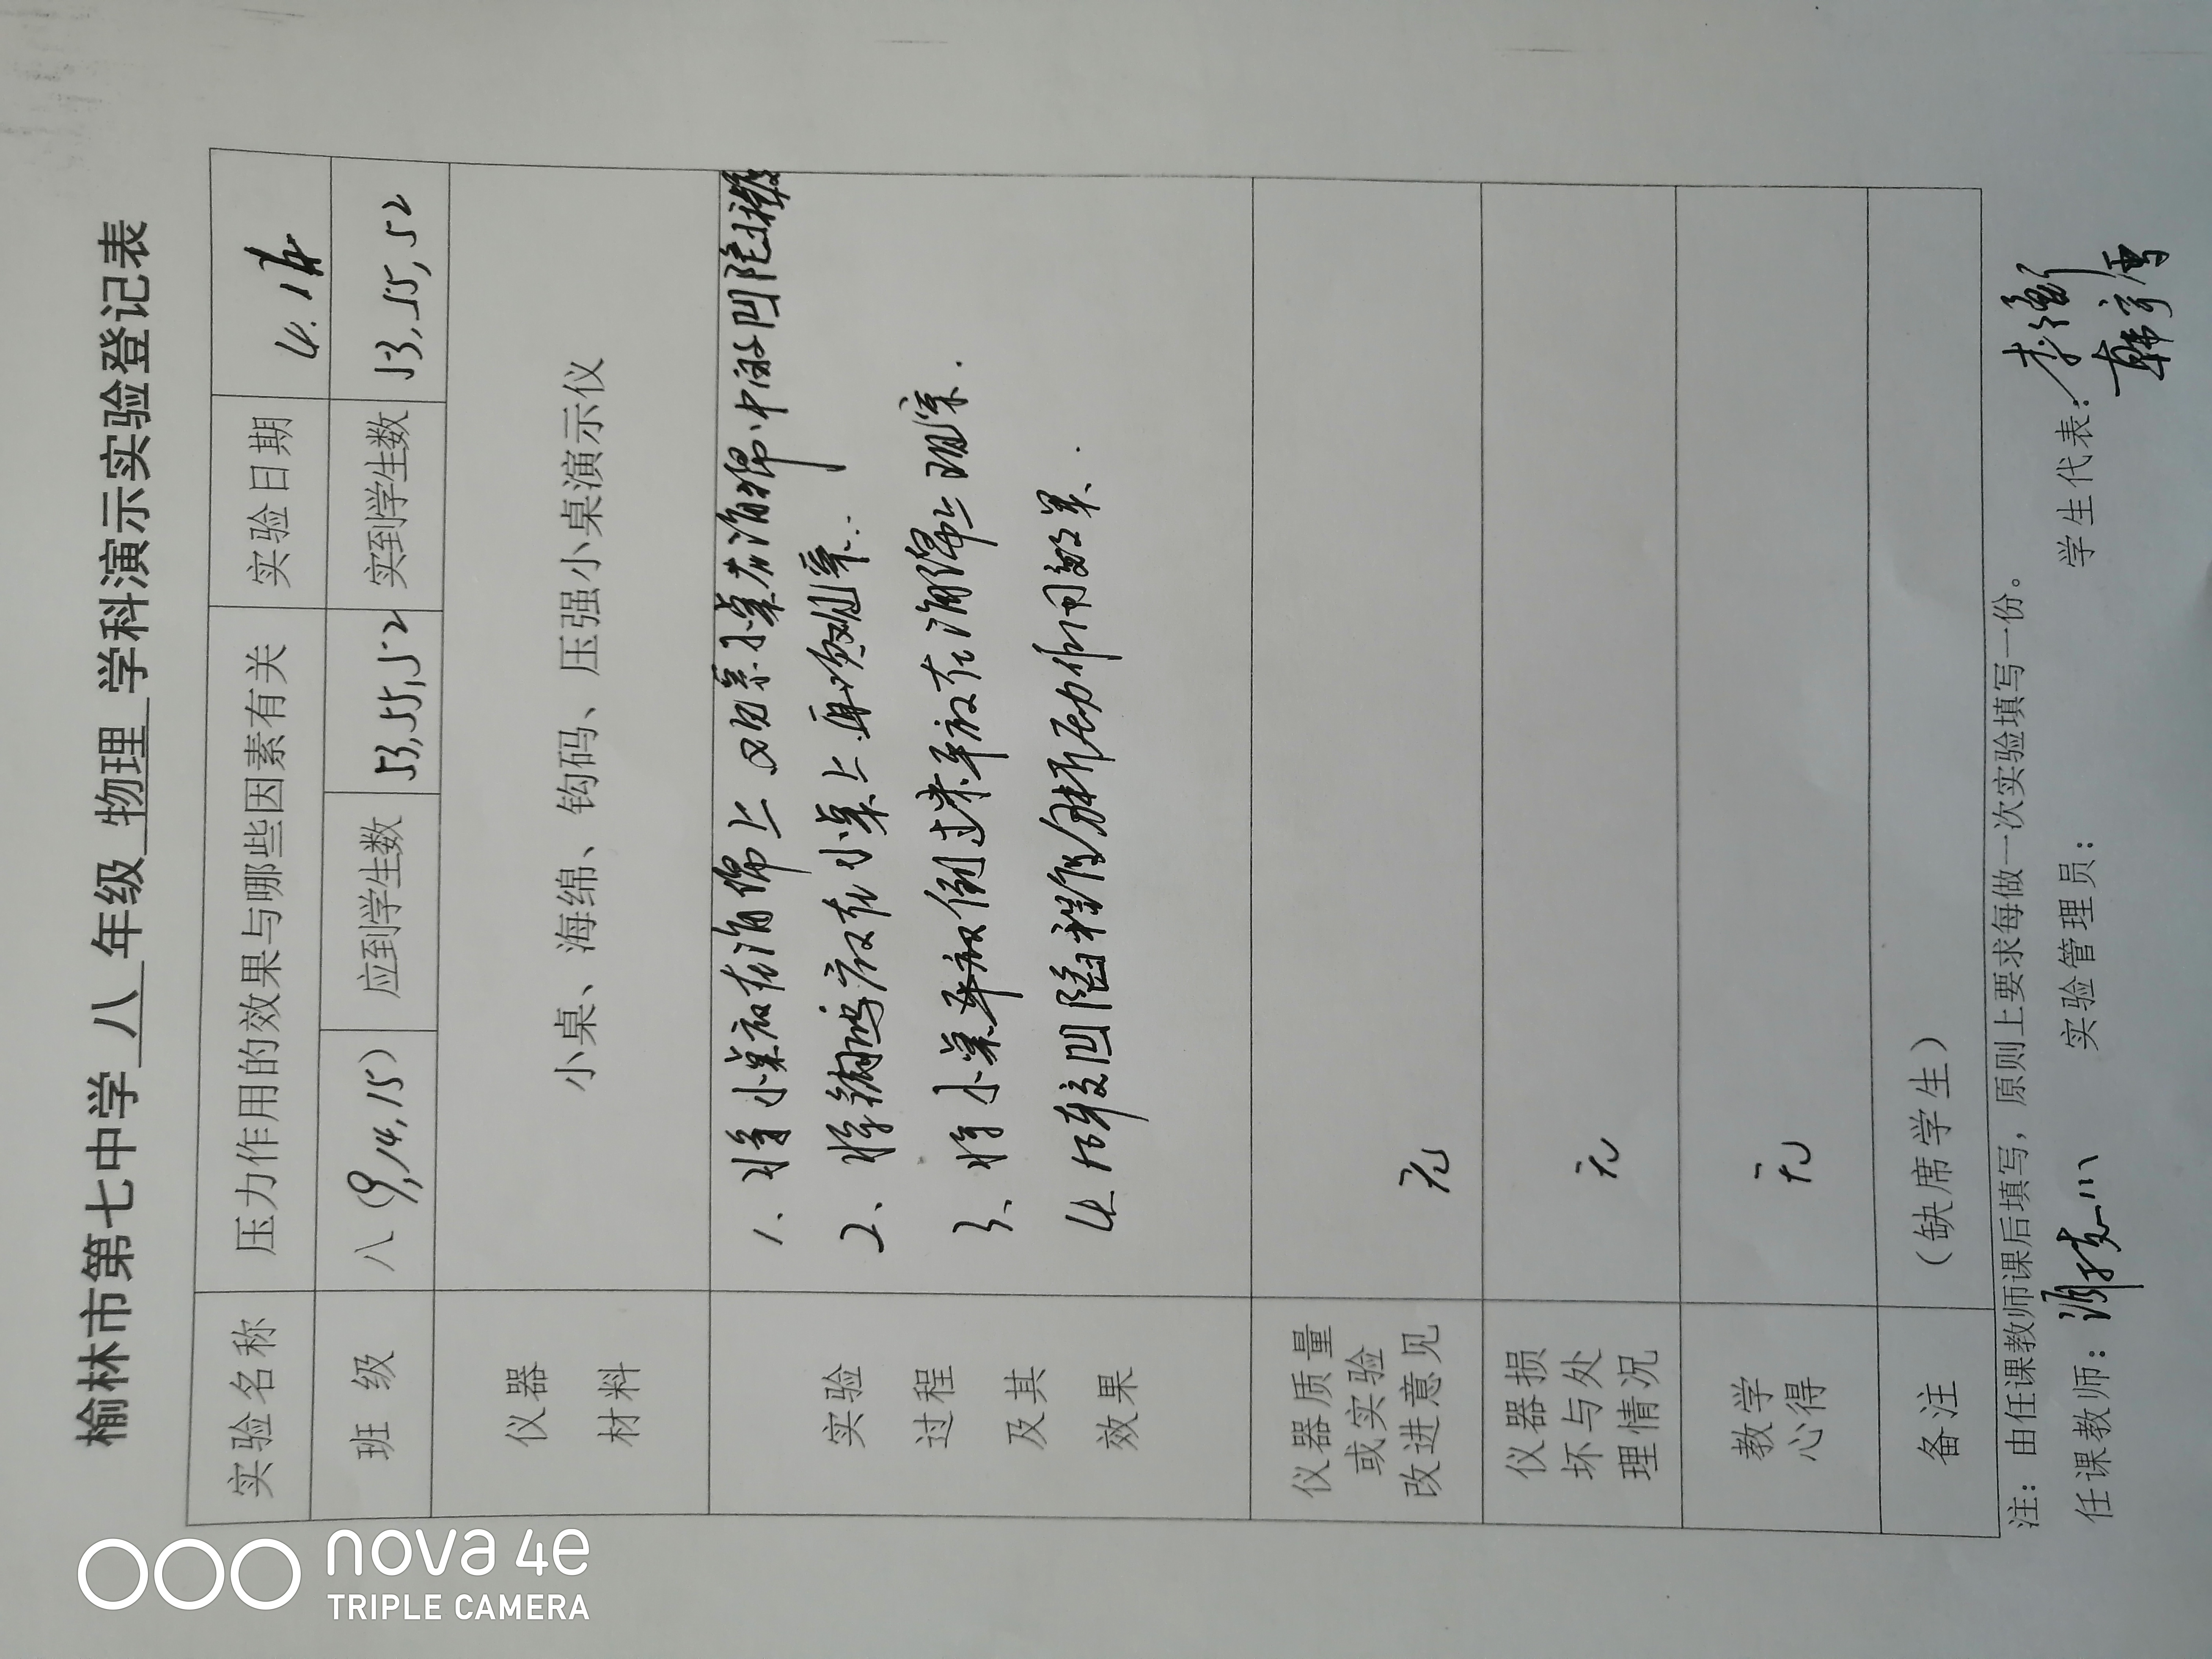 榆林市第七中学 八 年级 物理 学科演示实验登记表
实验名称 压力作用的效果与哪些因素有关 实验日期 4.14
班 级 八（9,14,15） 应到学生数 53,55,52 实到学生数 53,55,52
仪器
材料
小桌、海绵、钩码、压强小桌演示仪
实验
过程
及其
效果
1、将小桌放在海绵上 观察小桌在海绵中的凹陷程度
2、将钩码放在小桌上再次观察.
3、将小桌倒过来平放在海绵上观察.
4、比较凹陷程度分析压力作用效果.
仪器质量
或实验
改进意见
无
仪器损
坏与处
理情况
无
教学
心得
无
备注 （缺席学生）
注：由任课教师课后填写，原则上要求每做一次实验填写一份。
任课教师： 实验管理员： 学生代表：
nova 4e
TRIPLE CAMERA